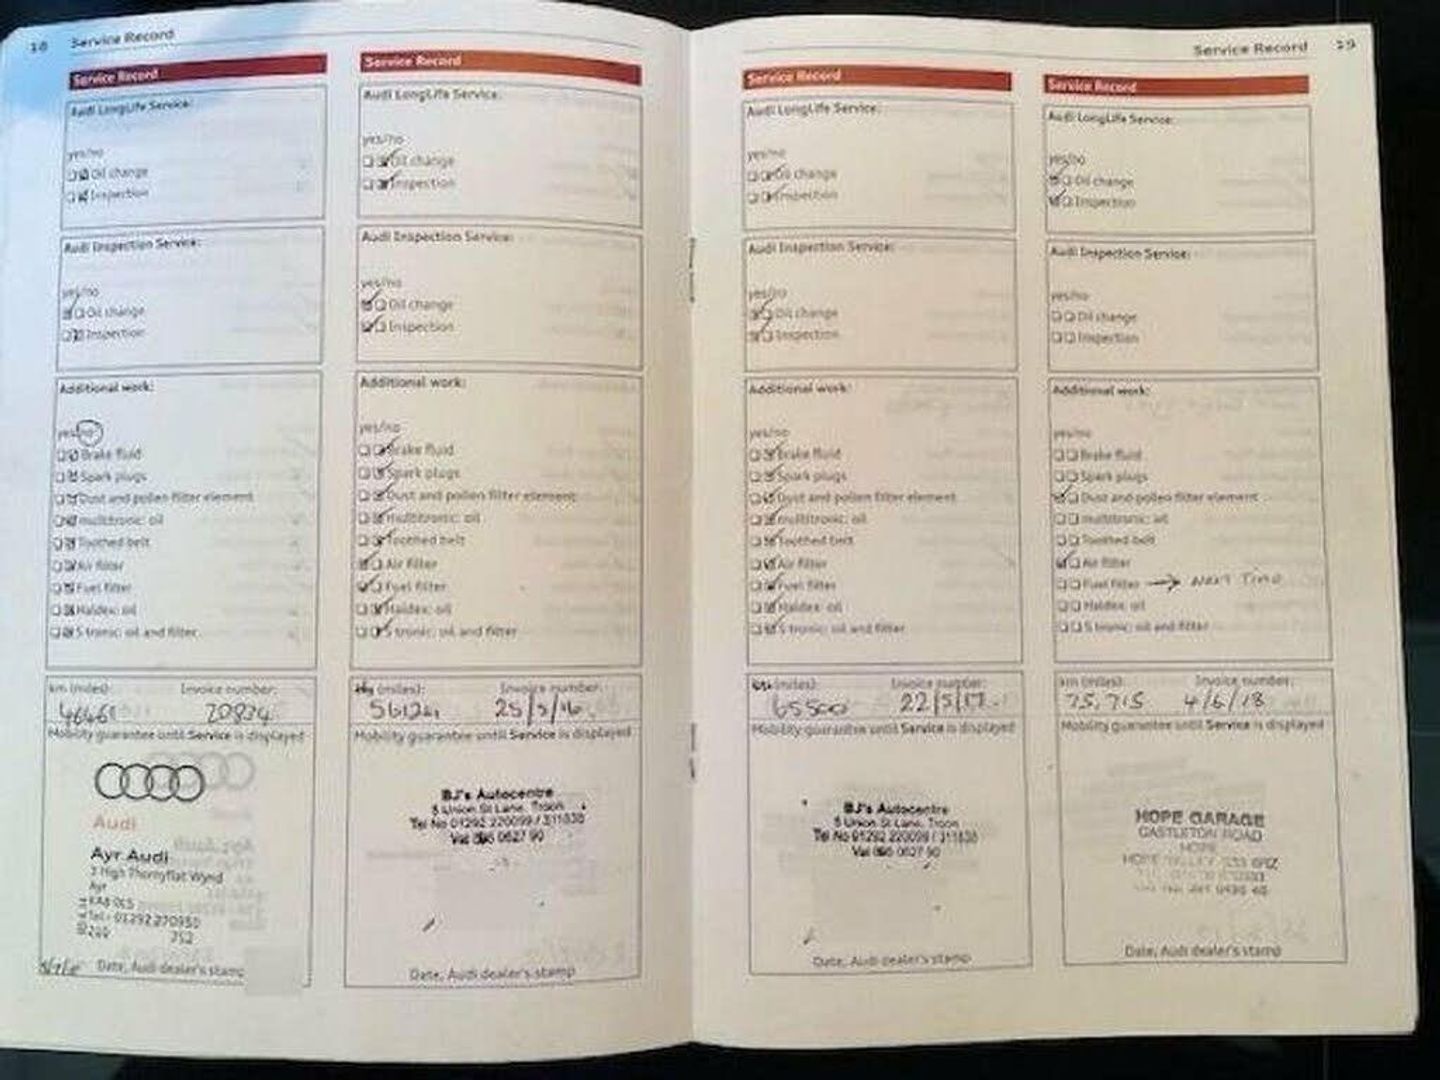 18 Service Record
Service Record
Audi LongLife Service:
yes/no
Oil change
Inspection
Audi Inspection Service:
yes/no
Oil change
Inspection
Additional work:
yes/no
Brake fluid
Spark plugs
Dust and pollen filter element
multitronic: oil
Toothed belt
Air filter
Fuel filter
Haldex: oil
S tronic: oil and filter
km (miles): Invoice number:
46461 20834
Mobility guarantee until Service is displayed
Audi
Ayr Audi
Ayr
KA8
Tel:- 01292 270950
Date, Audi dealer's stamp
Service Record
Audi LongLife Service:
yes/no
Oil change
Inspection
Audi Inspection Service:
yes/no
Oil change
Inspection
Additional work:
yes/no
Brake fluid
Spark plugs
Dust and pollen filter element
multitronic: oil
Toothed belt
Air filter
Fuel filter
Haldex: oil
S tronic: oil and filter
(miles): Invoice number:
25/5/16
Mobility guarantee until Service is displayed
BJ's Autocentre
5 Union St Lane, Troon
Tel No 01292 220099 / 311838
Date, Audi dealer's stamp
Service Record 19
Service Record
Audi LongLife Service:
yes/no
Oil change
Inspection
Audi Inspection Service:
yes/no
Oil change
Inspection
Additional work:
yes/no
Brake fluid
Spark plugs
Dust and pollen filter element
multitronic: oil
Toothed belt
Air filter
Fuel filter
Haldex: oil
S tronic: oil and filter
(miles): Invoice number:
65500 22/5/17
Mobility guarantee until Service is displayed
BJ's Autocentre
5 Union St Lane, Troon
Tel No 01292 220099 / 311838
Date, Audi dealer's stamp
Service Record
Audi LongLife Service:
yes/no
Oil change
Inspection
Audi Inspection Service:
yes/no
Oil change
Inspection
Additional work:
yes/no
Brake fluid
Spark plugs
Dust and pollen filter element
multitronic: oil
Toothed belt
Air filter
Fuel filter → Next Time
Haldex: oil
S tronic: oil and filter
km (miles): Invoice number:
75,715 4/6/18
Mobility guarantee until Service is displayed
HOPE GARAGE
CASTLETON ROAD
HOPE
HOPE VALLEY
Date, Audi dealer's stamp